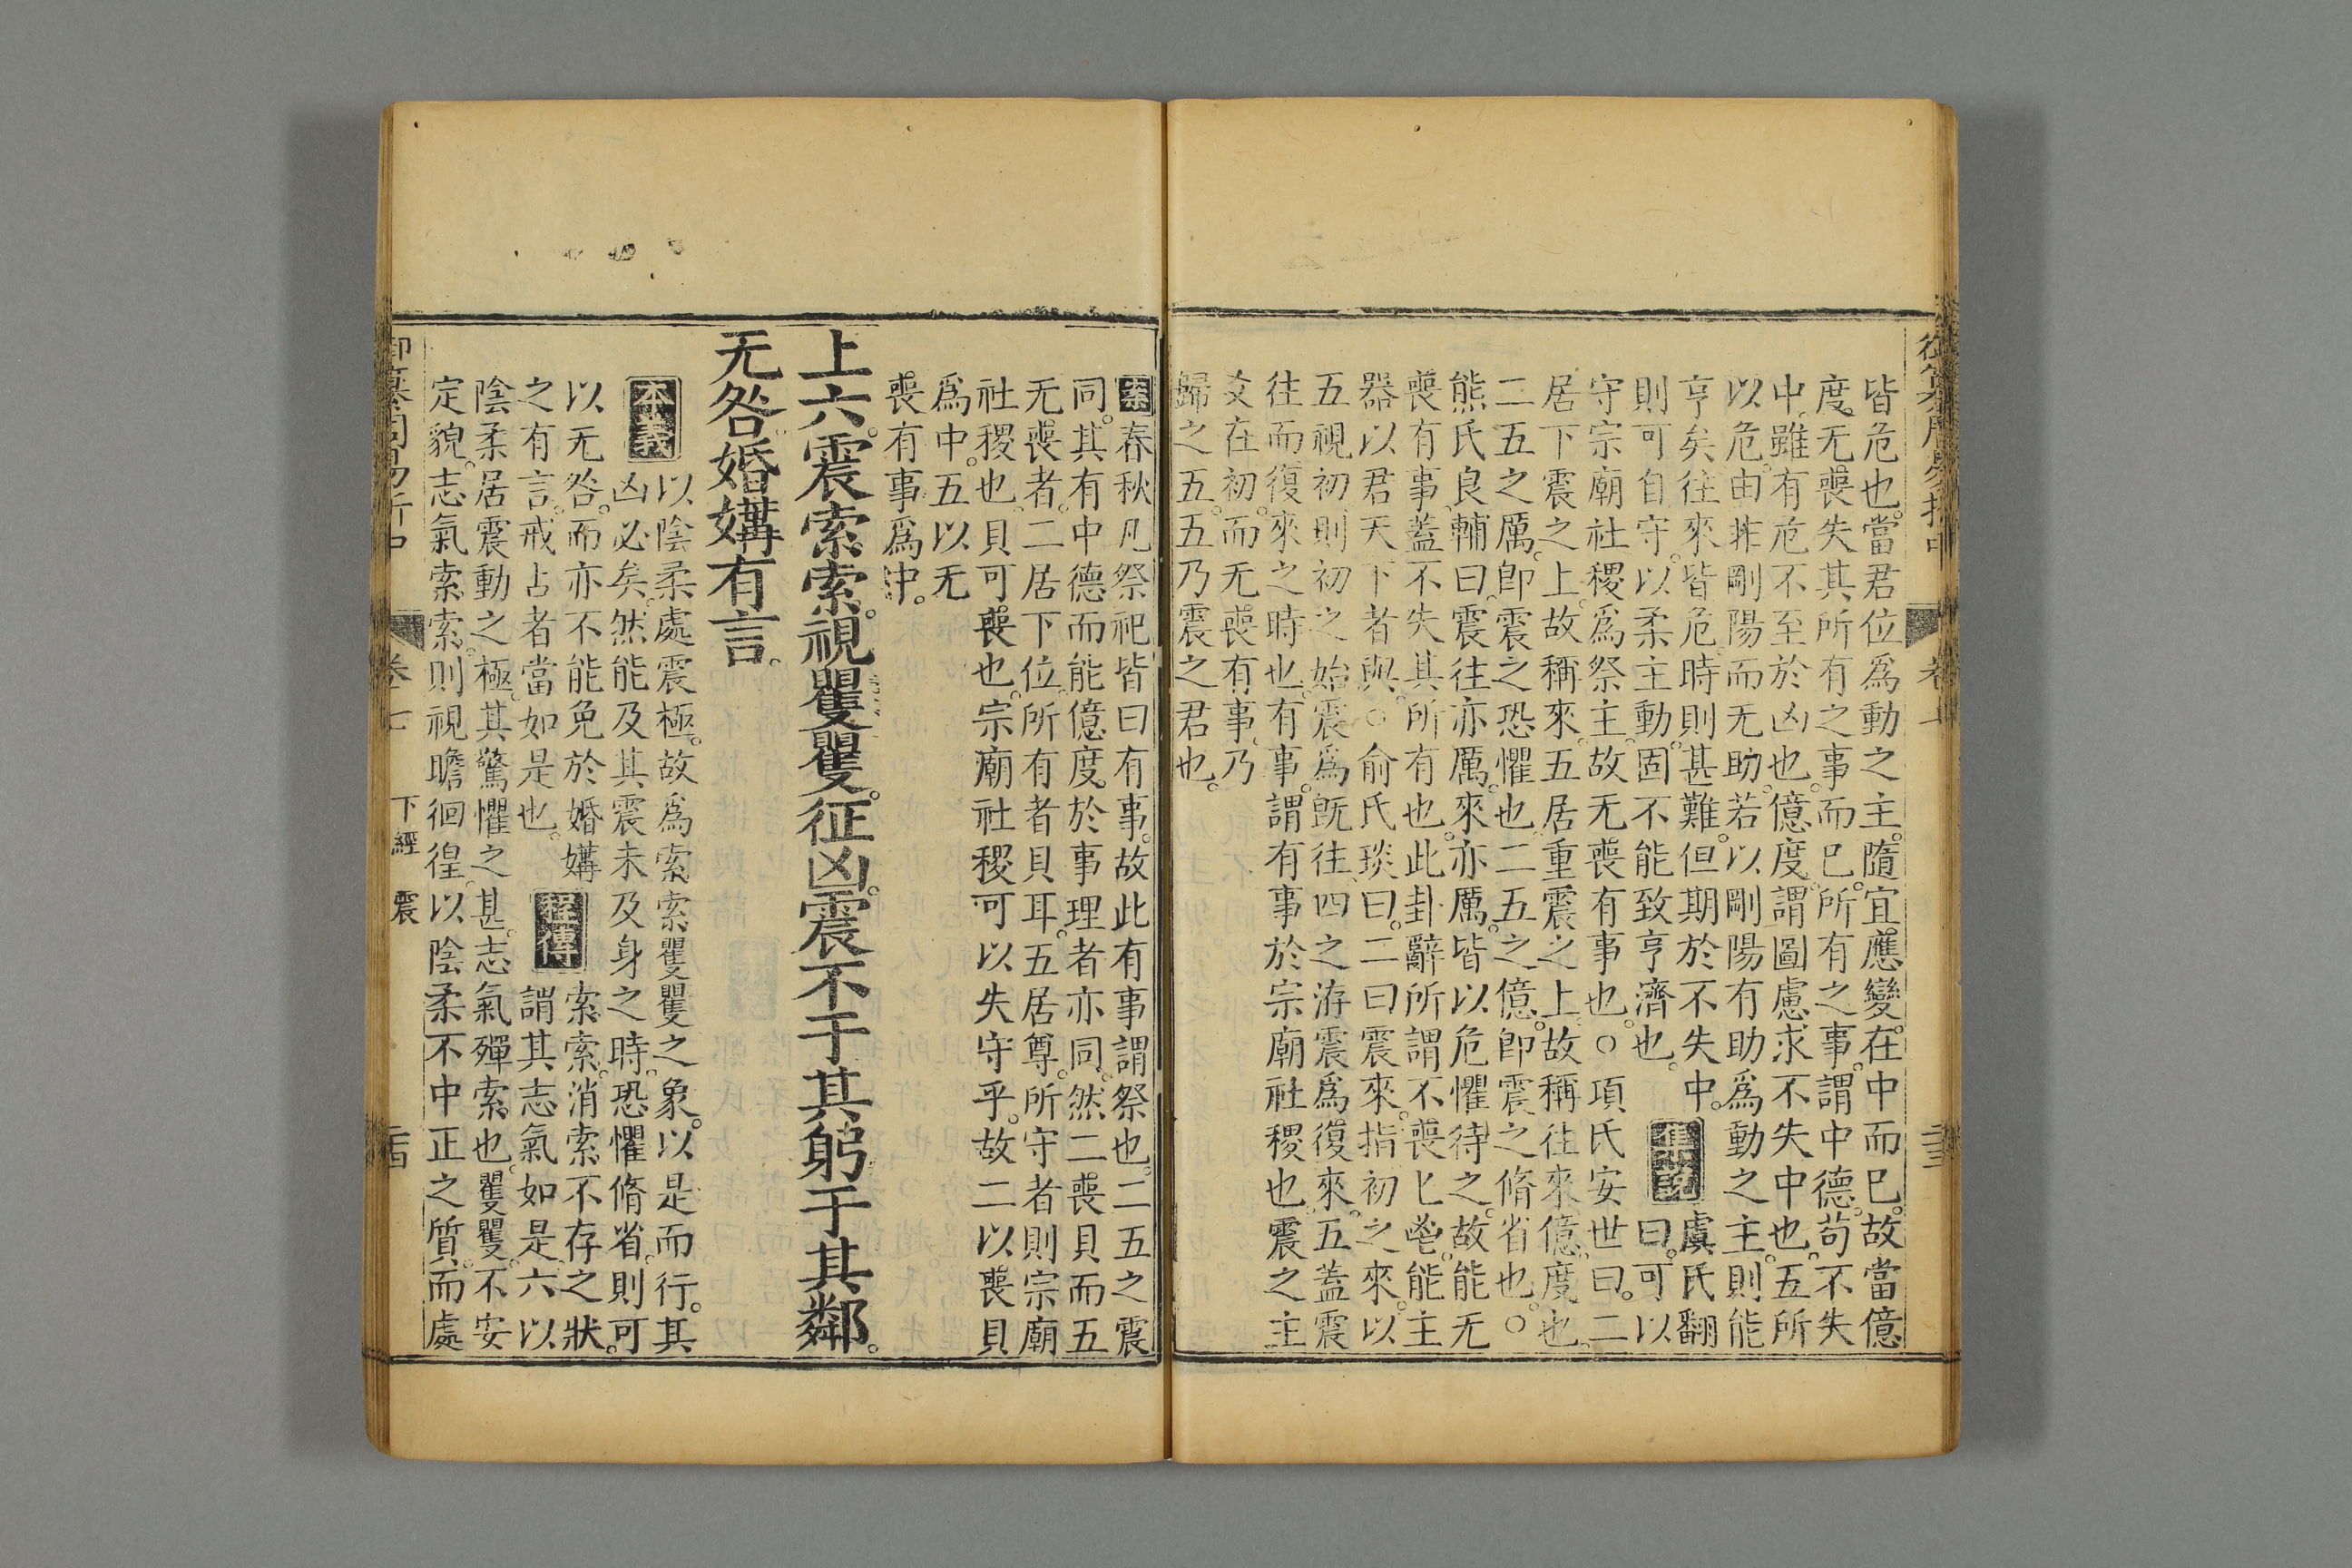 皆危也。當君位爲動之主。隨宜應變。在中而已。故當億
度。无喪失其所有之事而已。所有之事。謂中德。苟不失
中。雖有危不至於凶也。億度。謂圖慮求不失中也。五所
以危。由非剛陽而无助。若以剛陽有助爲動之主。則能
亨矣。往來皆危。時則甚難。但期於不失中。
則可自守。以柔主動。固不能致亨濟也。
集說
虞氏翻
曰。可以
守宗廟社稷爲祭主。故无喪有事也。○項氏安世曰。二
居下震之上。故稱來。五居重震之上。故稱往來。億度也。
二五之厲。卽震之恐懼也。二五之億。卽震之脩省也。○
熊氏良輔曰。震往亦厲。來亦厲。皆以危懼待之。故能无
喪有事。蓋不失其所有也。此卦辭所謂不喪匕鬯。能主
器以君天下者與。○俞氏琰曰。二曰震來。指初之來。以
五視初。則初之始震爲旣往。四之洊震爲復來。五蓋震
往而復來之時也。有事。謂有事於宗廟社稷也。震之主
爻在初。而无喪有事。乃
歸之五。五乃震之君也。
卷十一
二十三
案春秋凡祭祀皆曰有事。故此有事謂祭也。二五之震
同。其有中德而能億度於事理者亦同。然二喪貝而五
无喪者。二居下位。所有者貝耳。五居尊。所守者則宗廟
社稷也。貝可喪也。宗廟社稷可以失守乎。故二以喪貝
爲中。五以无
喪有事爲中。
上六。震索索。視矍矍。征凶。震不于其躬于其鄰。
无咎。婚媾有言。
本義
以陰柔處震極。故爲索索矍矍之象。以是而行。其
凶必矣。然能及其震未及身之時。恐懼脩省。則可
以无咎。而亦不能免於婚媾
之有言。戒占者當如是也。
程傳
索索。消索不存之狀。
謂其志氣如是。六以
陰柔居震動之極。其驚懼之甚。志氣殫索也。矍矍。不安
定貌。志氣索索。則視瞻徊徨。以陰柔不中正之質。而處
御纂周易折中
卷十一
下經
震
二十四